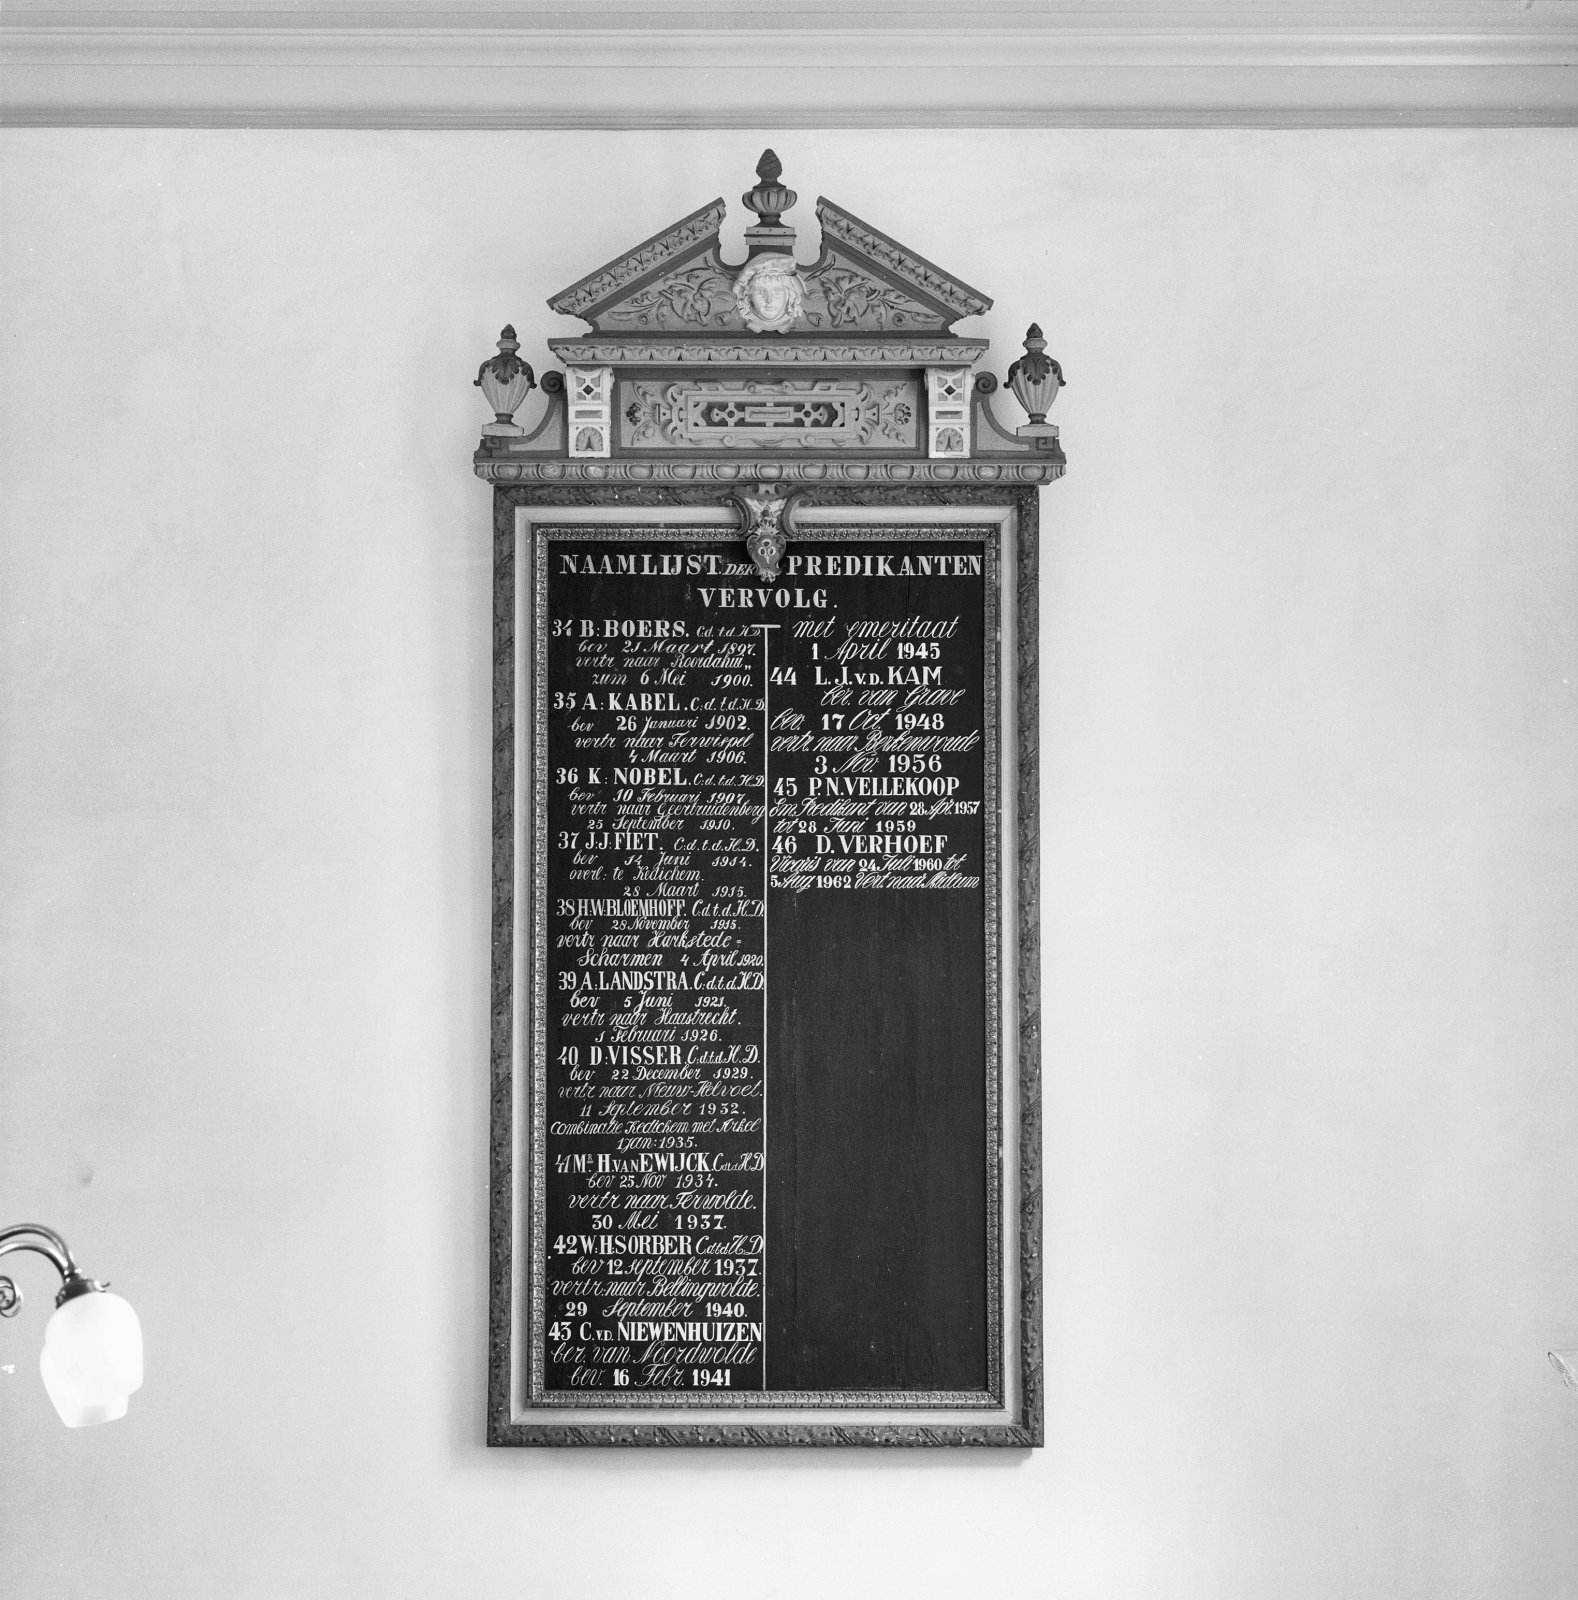 NAAMLIJST DER PREDIKANTEN
VERVOLG.
34 B: BOERS. C:d. t.d. H.D.
bev 21 Maart 1897.
vertr naar Roordahui„
zum 6 Mei 1900.
35 A: KABEL. C:d. t.d. H.D.
bev 26 Januari 1902.
vertr naar Terwispel
4 Maart 1906.
36 K: NOBEL. C:d. t.d. H.D.
bev 10 Februari 1907.
vertr naar Geertruidenberg
25 September 1910.
37 J.J: FIET. C:d. t.d. H.D.
bev 14 Juni 1914.
overl: te Kedichem.
28 Maart 1915.
38 H.W: BLOEMHOFF. C:d.t.d. H.D.
bev 28 November 1915.
vertr naar Harkstede =
Scharmen 4 April 1920.
39 A: LANDSTRA. C:d.t.d. H.D.
bev 5 Juni 1921.
vertr naar Haastrecht.
1 Februari 1926.
40 D: VISSER. C:d.t.d. H.D.
bev 22 December 1929.
vertr naar Nieuw-Helvoet.
11 September 1932.
Combinatie Kedichem met Arkel
1 jan: 1935.
41 MR. H. VAN EWIJCK. C:d.t.d. H.D
bev 25 Nov 1934.
vertr naar Terwolde.
30 Mei 1937.
42 W: H: SORBER C:d.t.d. H.D
bev 12 september 1937.
vertr: naar Bellingwolde.
29 September 1940.
43 C. V.D. NIEWENHUIZEN
ber. van Noordwolde
bev. 16 Febr. 1941
met emeritaat
1 April 1945
44 L. J. V. D. KAM
ber. van Grave
bev. 17 Oct. 1948
vertr. naar Berkenwoude
3 Nov. 1956
45 P. N. VELLEKOOP
Em. Predikant van 28 Apr. 1957
tot 28 Juni 1959
46 D. VERHOEF
Vicaris van 24 Juli 1960 tot
5 Aug. 1962 Vert. naar Midlum